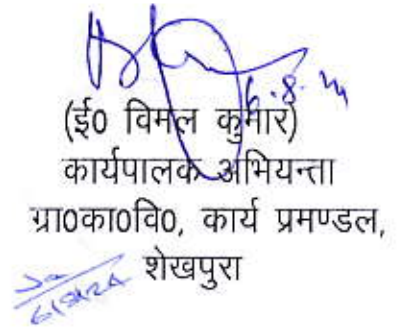 6.8.24
(ई0 विमल कुमार)
कार्यपालक अभियन्ता
ग्रा0का0वि0, कार्य प्रमण्डल,
शेखपुरा
6/8/24